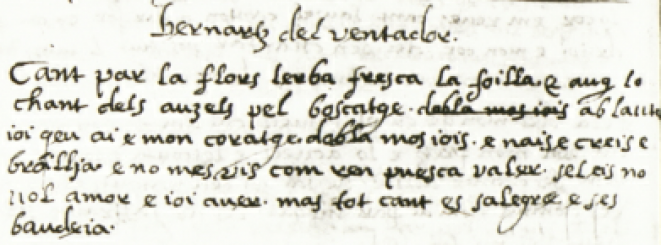 bernartz del ventador.
Cant par la flors lerba fresca la foilla. e aug lo
chant dels auzels pel boscatge. dobla mos iois ab lautre
ioi qeu ai e mon coratge. dobla mos iois. e nais e creis e
broillia e no mes vis com ren puesca valer. seleis no
uol amor e ioi auer. mas tot cant es salegre e ses
baudeia.